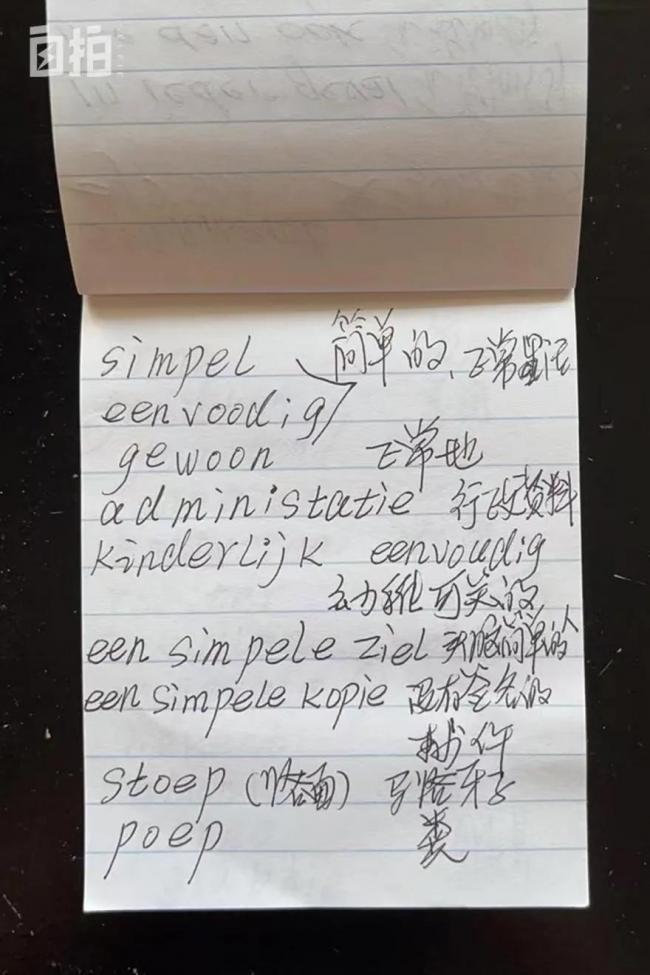 自拍
simpel 简单的、正常
eenvoodig
gewoon 正常地
administatie 行政资料
kinderlijk eenvoudig
可笑的
een simpele ziel 头脑简单的人
een simpele kopie 没有签名的
件
stoep (路面) 马路牙子
poep 粪